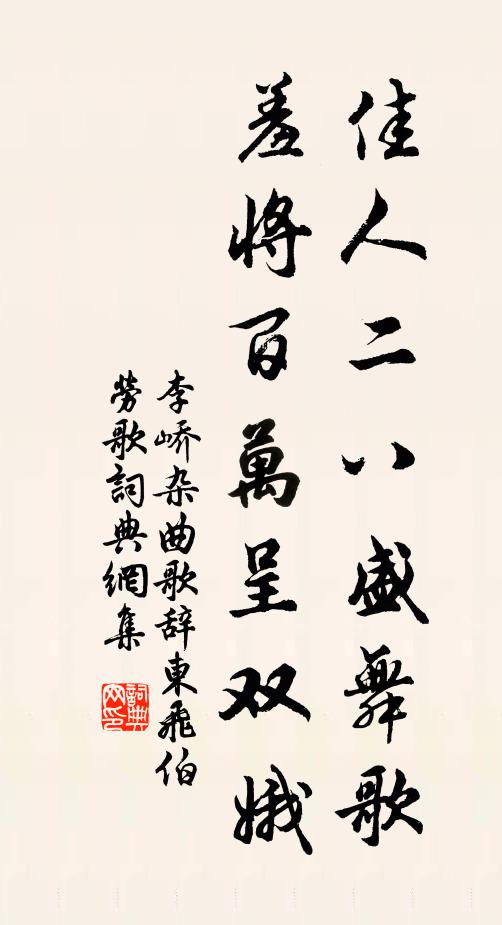 佳人二八盛舞歌
羞将百萬呈双娥
李峤杂曲歌辞東飛伯
勞歌詞典網集
詞典
网印